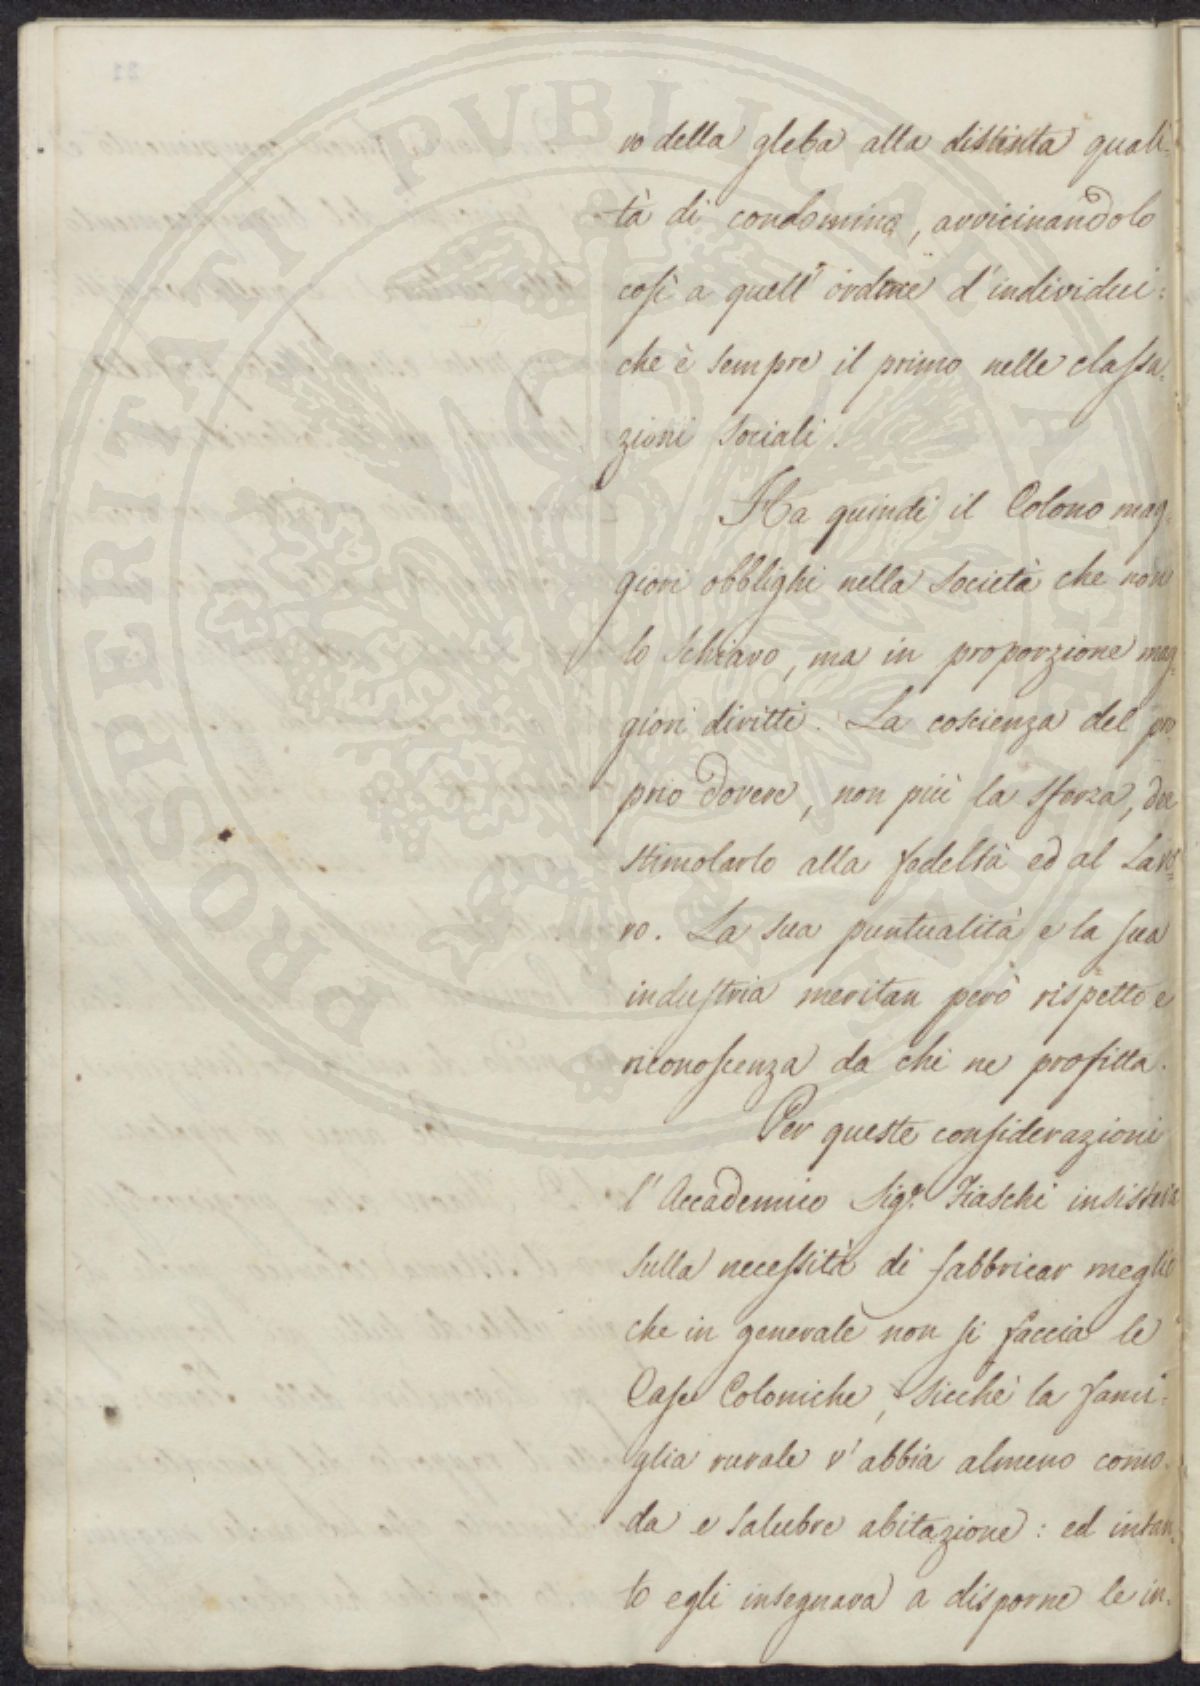 vo della gleba alla distinta quali=
tà di condomino, avvicinandolo
così a quell'ordine d'individui:
che è sempre il primo nelle classa=
zioni sociali.
Ha quindi il Colono mag=
giori obblighi nella società che non
lo schiavo, ma in proporzione mag=
giori diritti. La coscienza del pro
prio dovere, non più la sferza, dee
stimolarlo alla fedeltà ed al Lavo=
ro. La sua puntualità e la sua
industria meritan però rispetto e
riconoscenza da chi ne profitta.
Per queste considerazioni
l'Accademico Sigr. Fiaschi insisteva
sulla necessità di fabbricar meglio
che in generale non si faccia le
Case Coloniche, sicchè la fami=
glia rurale v'abbia almeno como=
da e salubre abitazione: ed intan=
to egli insegnava a disporne le in=
PROSPERITATI PVBLICAE AVGENDAE
21